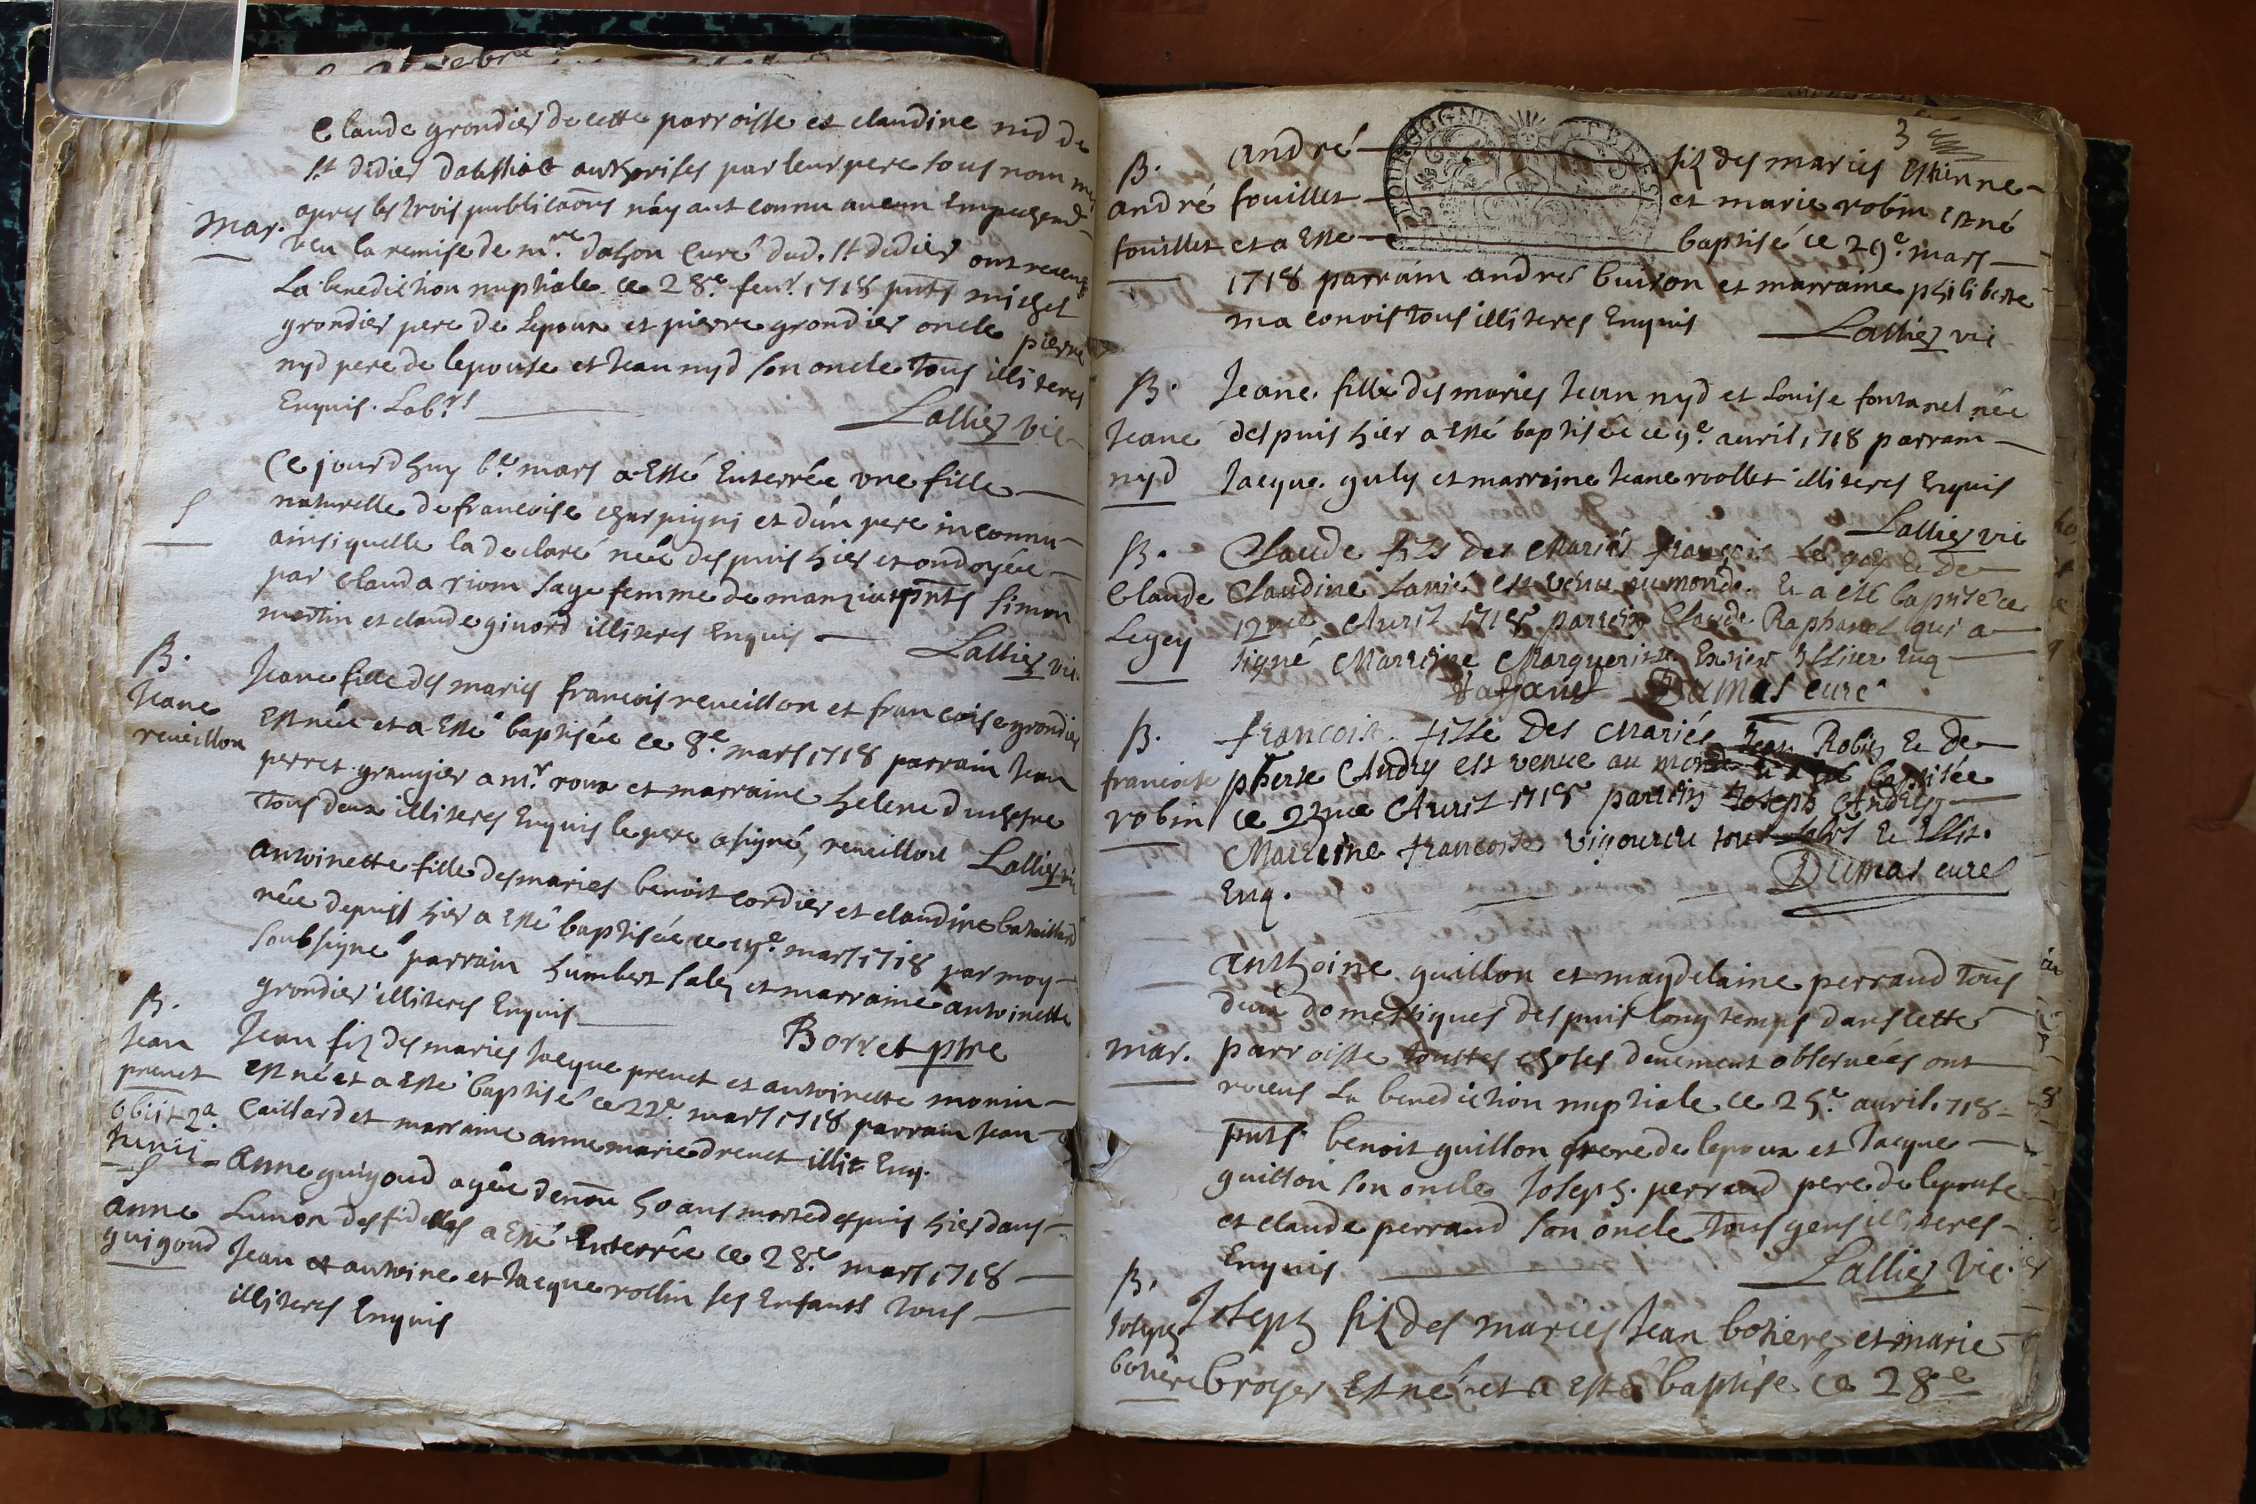 Claude grondier de cette parroisse et claudine nid de
St didier daussiat authorises par leur pere tous nommes
mar. apres les trois publicaons n'ayant connu aucun Empeschemt
veu la remise de mre dason Curé dud. St didier ont receus
La benediction nuptiale ce 28e feur. 1718 pnts michel
grondier pere de lepoux et pierre grondier oncle pierre
nyd pere de lepouse et Jean nyd son oncle tous illiteres
Enquis.
Lallier vic
Ce jourdhuy 6e mars a Esté Enterrée une fille
S naturelle de francoise charpigni et d'un pere inconnu
ainsi quelle la declaré née despuis hier et ondoyée
par clauda riom sage femme de manziat pnts simon
martin et claude givord illiteres Enquis
Lallier vic
B. Jeane reueillon
Jeane fille des maries francois reueillon et francoise grondier
Est née et a Esté baptisée ce 8e mars 1718 parrain Jean
perret grangier a mr. roux et marraine helene duchesne
tous deux illiteres Enquis le pere a signé, reueillon Lallier vic
antoinette fille des maries benoit cordier et claudine bataillard
née depuis hier a Esté baptisée ce 19e. mars 1718 par moy
soubsigné parrain humbert sale et marraine antoinette
grondier illiteres Enquis
Borret ptre
B. Jean preuet obiit 2a Junii
Jean filz des maries Jacque preuet et antoinette monin
est né et a Esté baptisé ce 22e. mars 1718 parrain Jean
Caillard et marraine anne marie dreuet illit Enq.
S anne guigoud
Anne guigoud agée denuon 50 ans morte despuis hier dans
Lunion des fidelles a Esté Enterrée ce 28e mars 1718
Jean et antoine et Jacque rollin ses Enfants tous
illiteres Enquis
3
B. andré fouillet
André filz des maries Estienne
fouillet et marie robin est né
et a Esté baptisé ce 29e. mars
1718 parrain andré buiron et marraine philiberte
ma convis tous illiteres Enquis
Lallier vic
B. Jeane nyd
Jeane fille des maries Jean nyd et Louise fontanel née
despuis hier a Esté baptisée ce 9e. auril 1718 parrain
Jacque guly et marraine Jeane roollet illiteres Enquis
Lallier vic
B. Claude Legey
Claude fils des Mariés françois Le gey & de
Claudine Lanié est venu au monde & a été baptisé ce
12me Auril 1718 parrein Claude Raphanel qui a
signé Marreine Marguerite Illiter Enq
Raffanel Dumas curé
B. francoise robin
francoise fille Des Mariés Jean Robin & de
pherte Andry est venue au monde & a été baptisée
ce 22me Auril 1718 parrein Joseph Andry
Marreine francoise vigoureu tous & Illit.
Enq.
Dumas curé
Anthoine guillon et magdelaine perraud tous
deux domestiques despuis long temps dans cette
mar. parroisse touttes choses deuement obseruées ont
receus La benediction nuptiale ce 25e. auril. 718
pnts. benoit guillon frere de lepoux et Jacque
guillon son oncle Joseph perraud pere de lepouse
et claude perraud son oncle tous gens illiteres
Enquis
Lallier vic.
B. Joseph botiere
Joseph filz des maries Jean botiere et marie
broyer Est né et a esté baptisé ce 28e